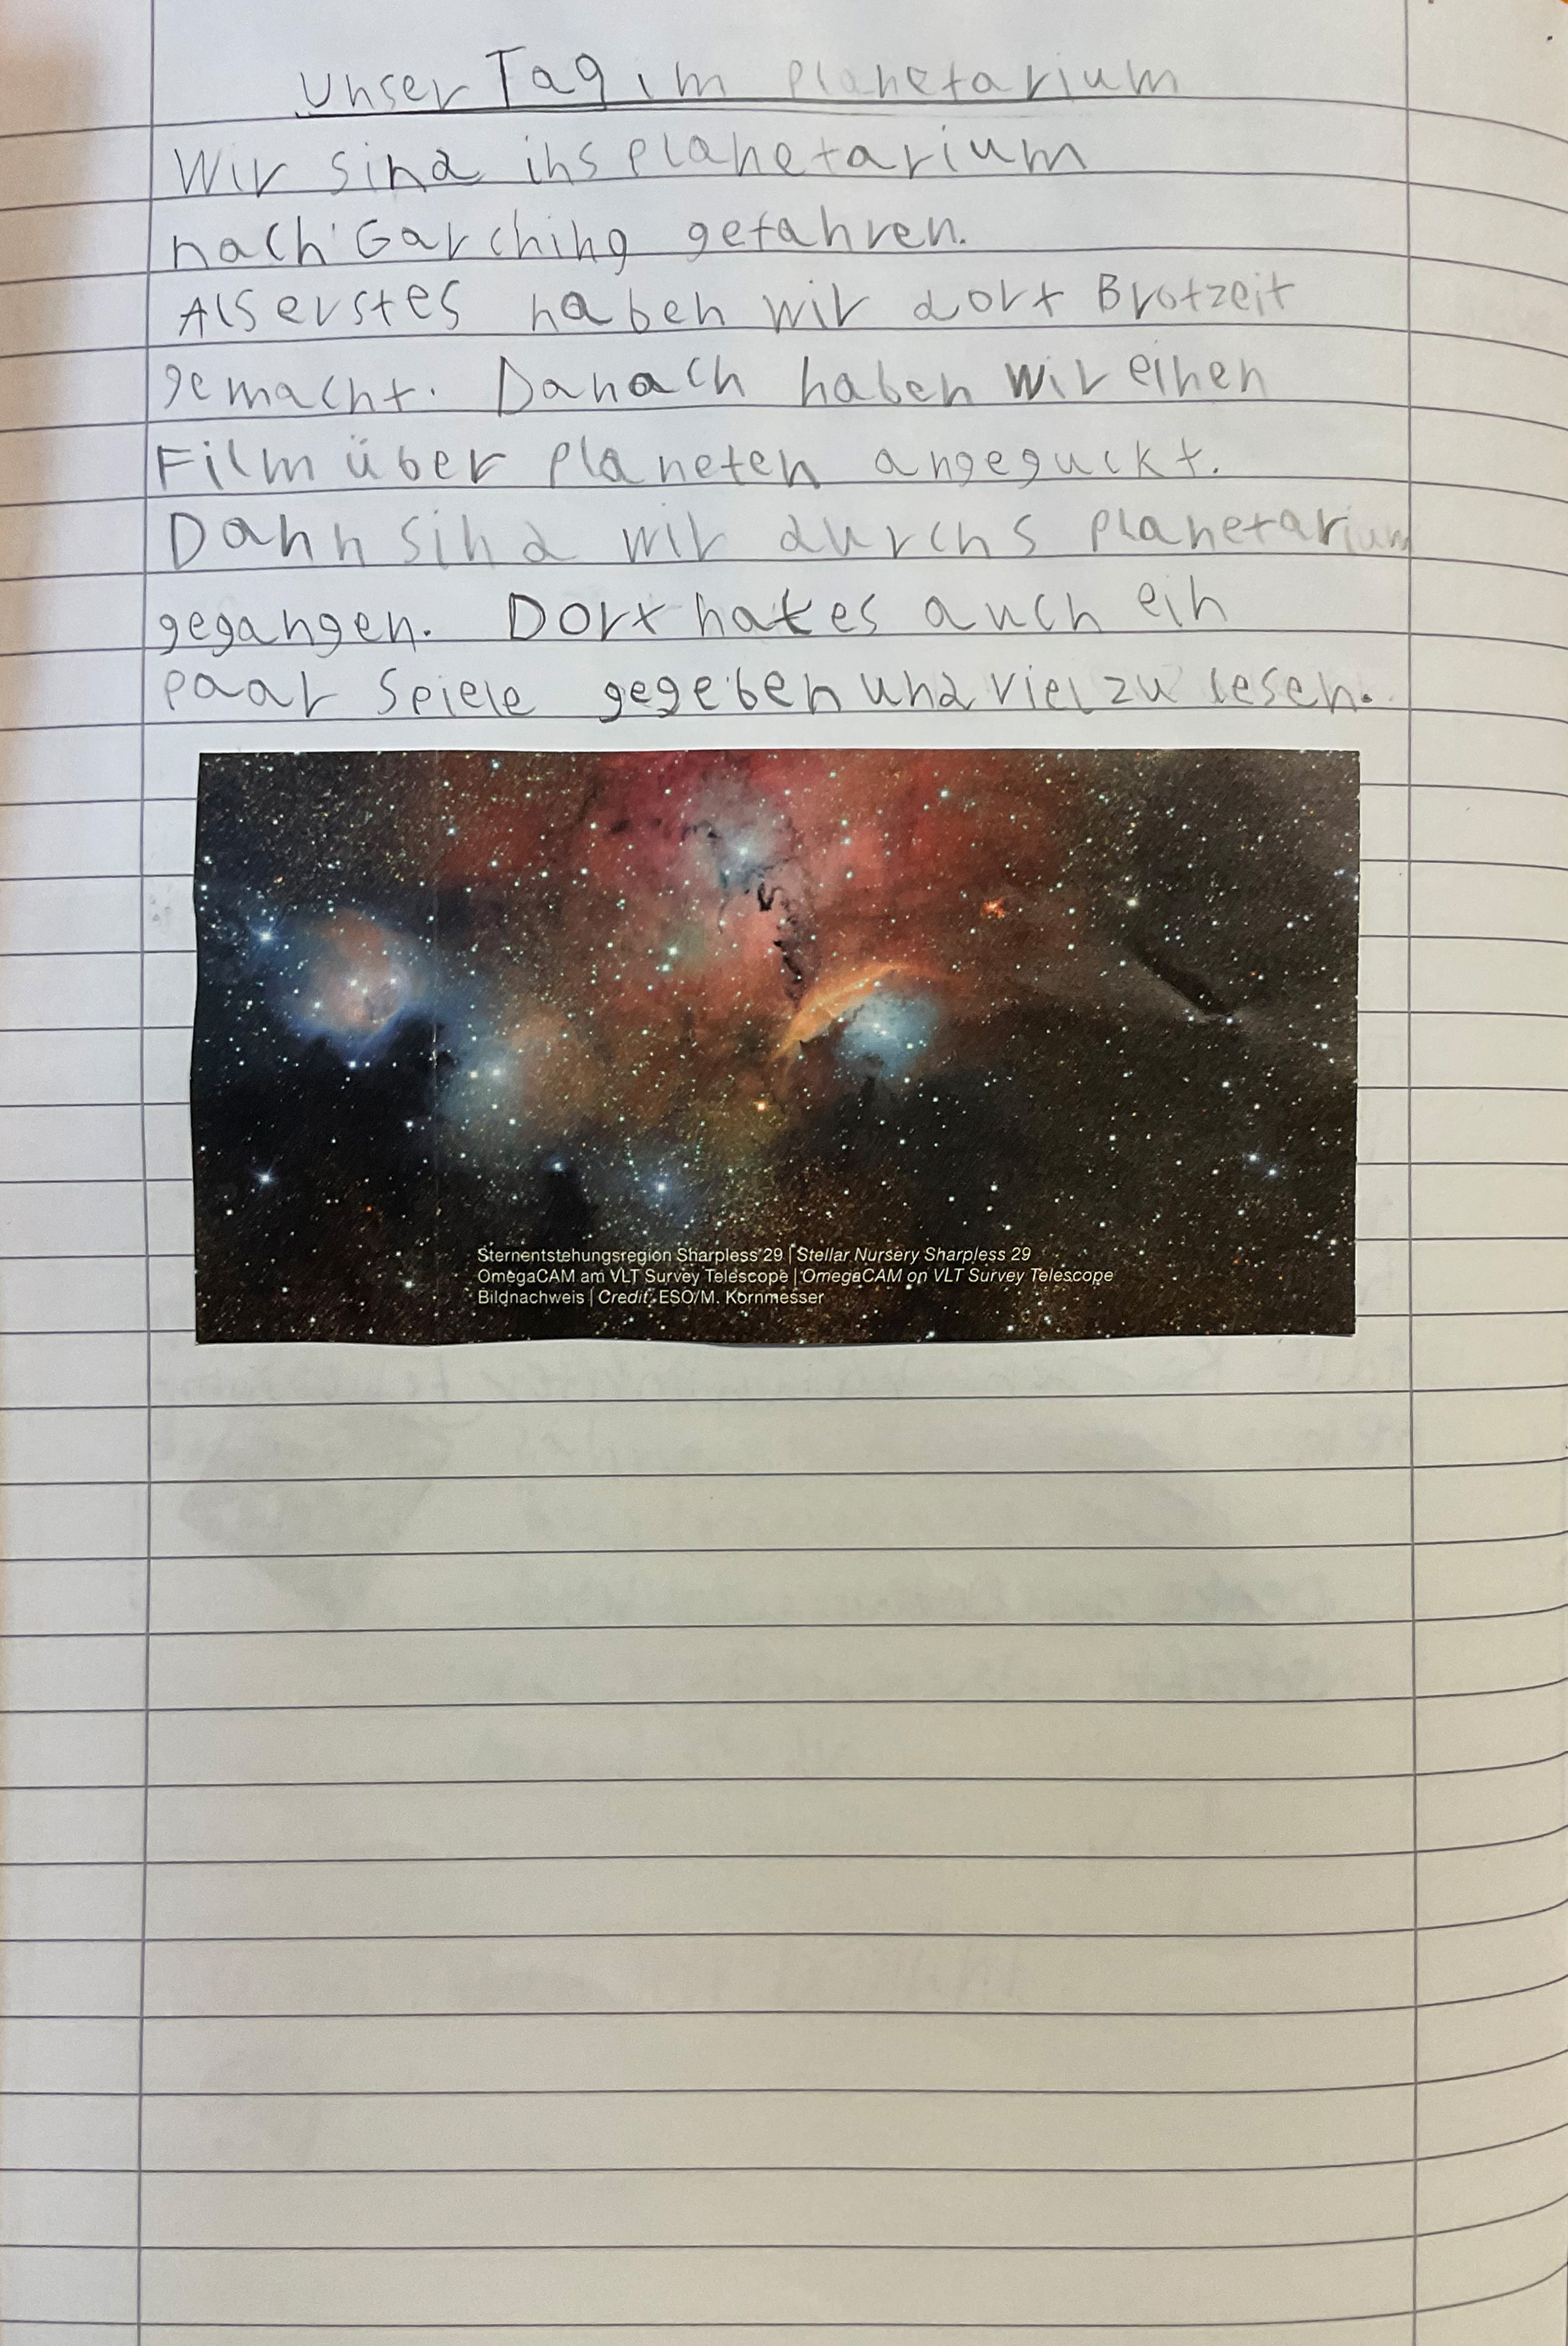 Unser Tag im Planetarium
Wir sind ins Planetarium
nach Garching gefahren.
Als erstes haben wir dort Brotzeit
gemacht. Danach haben wir einen
Film über Planeten angeguckt.
Dann sind wir durchs Planetarium
gegangen. Dort hat es auch ein
paar Spiele gegeben und viel zu lesen.
Sternentstehungsregion Sharpless 29 | Stellar Nursery Sharpless 29
OmegaCAM am VLT Survey Telescope | OmegaCAM on VLT Survey Telescope
Bildnachweis | Credit: ESO/M. Kornmesser